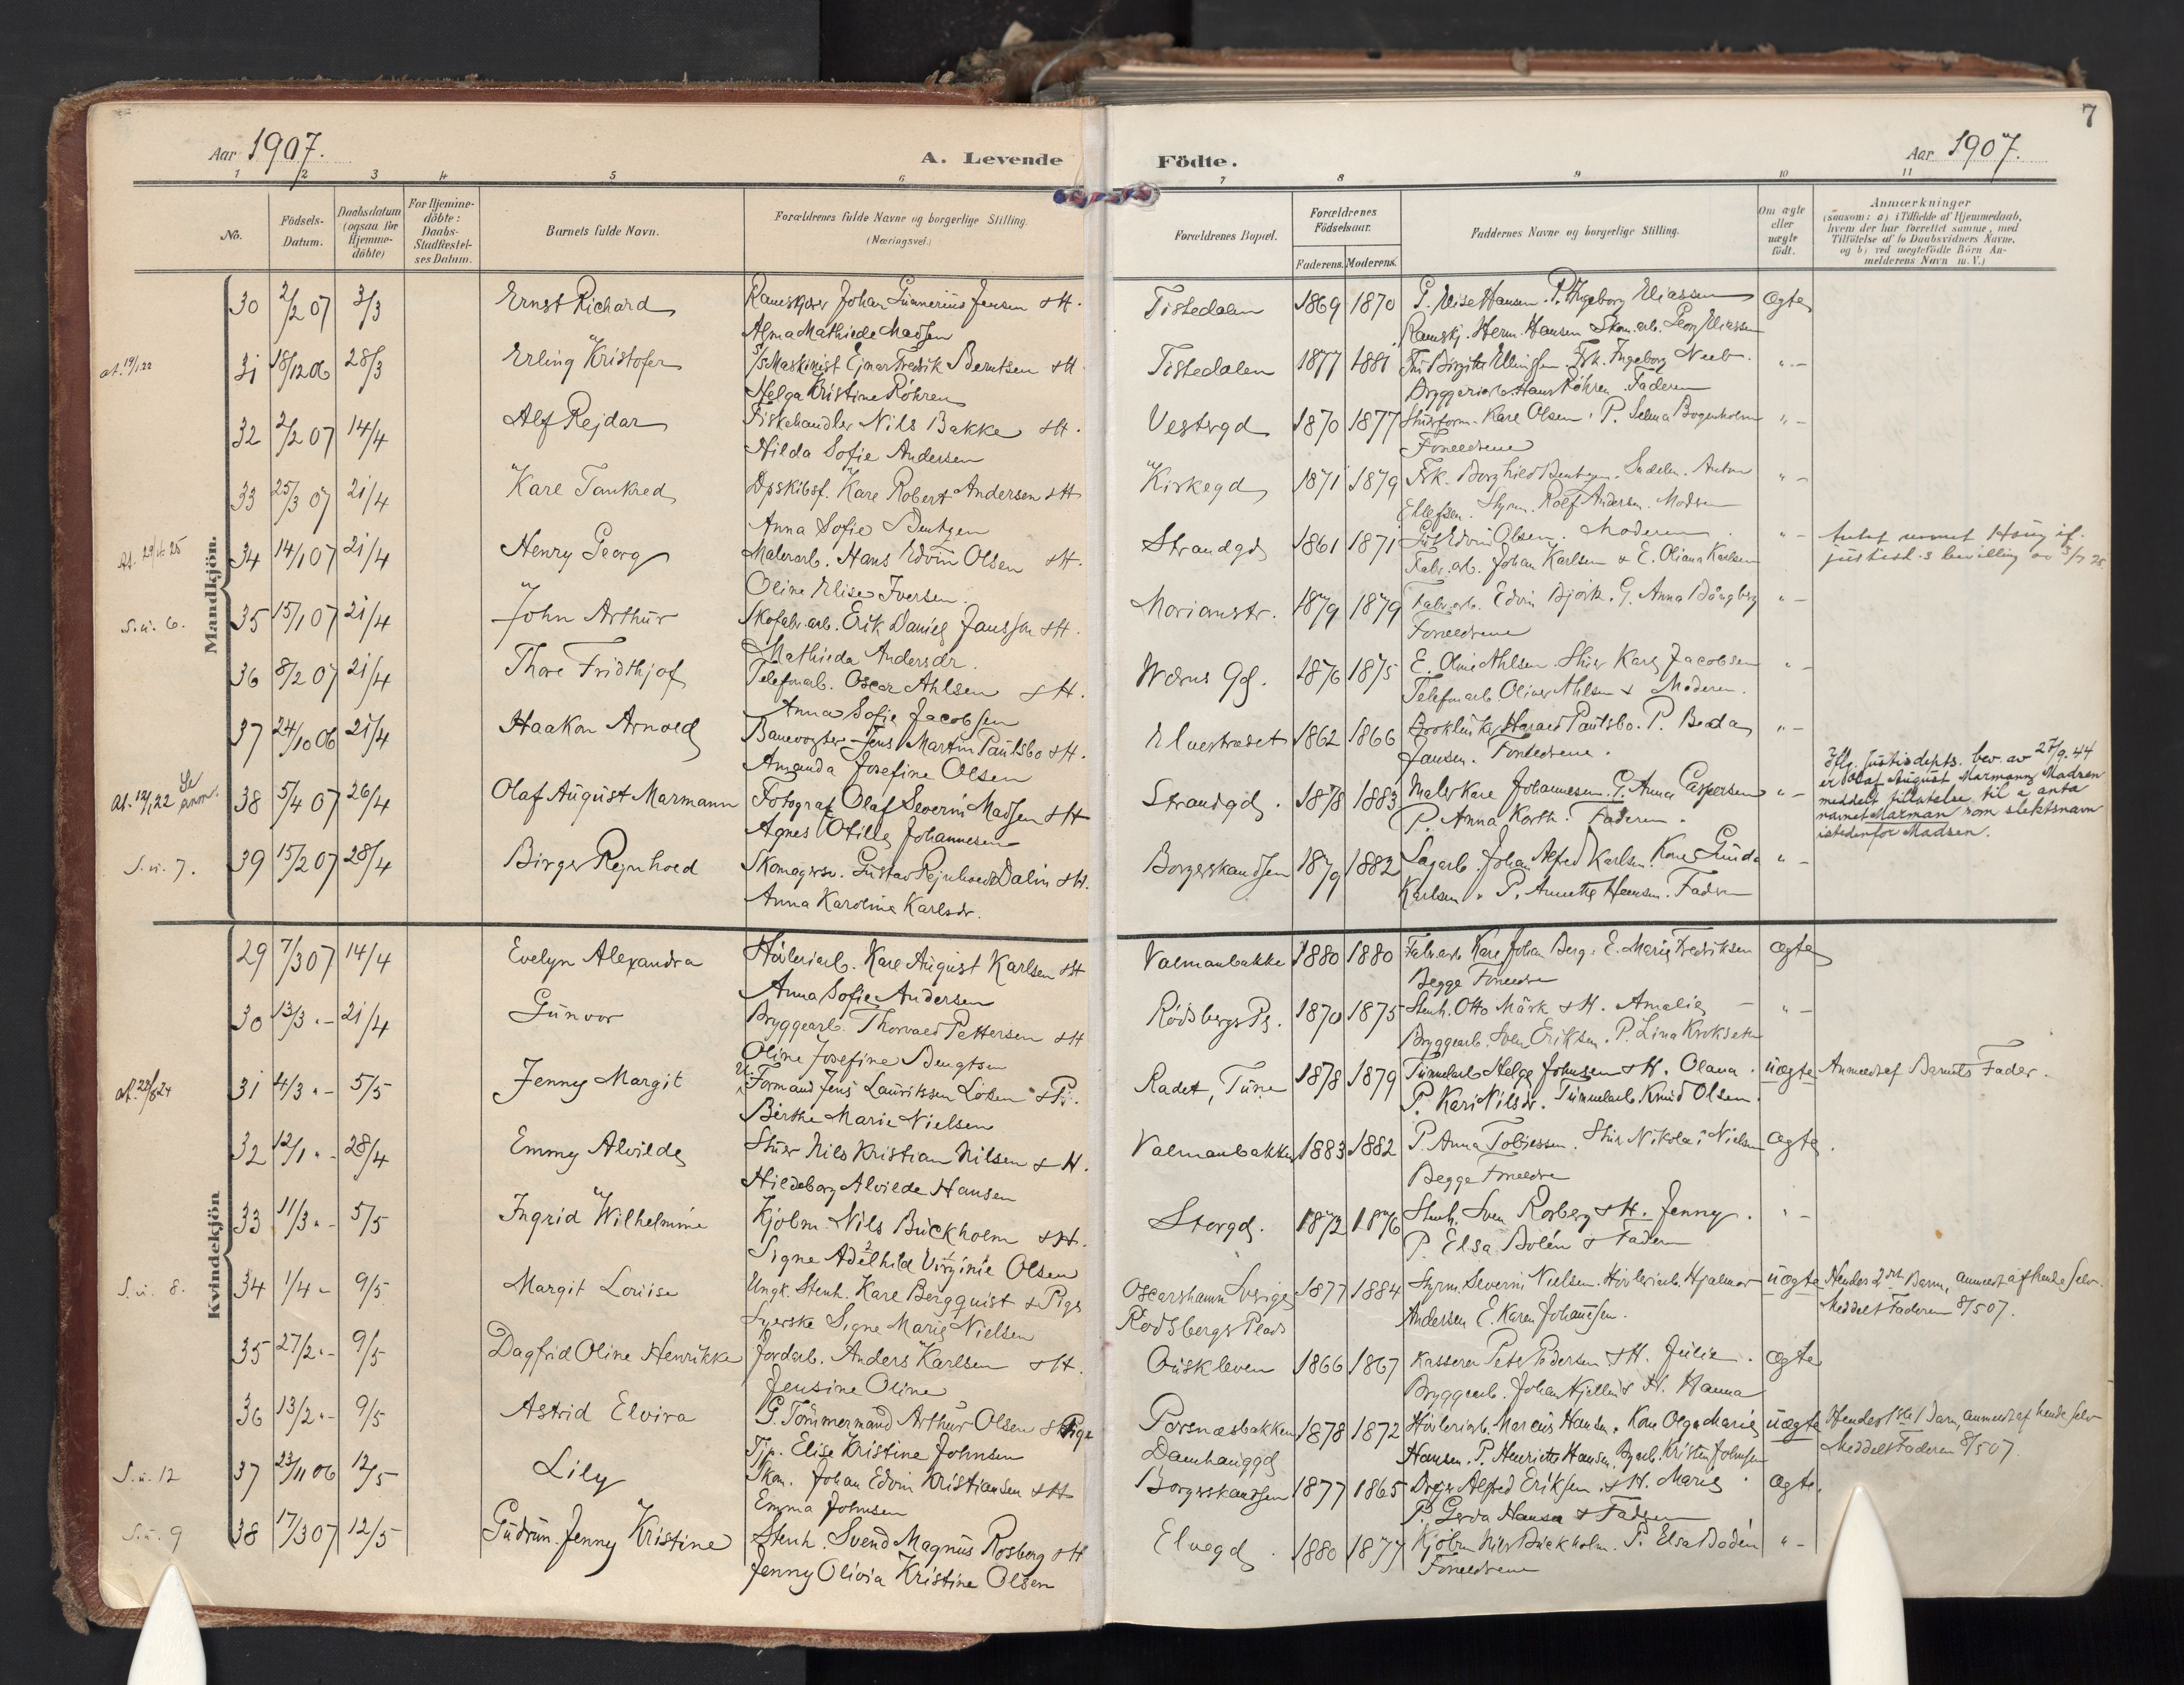 7
Aar 1907.
A. Levende Födte.
Aar 1907.
1 2 3 4 5 6 7 8 9 10 11
No.
Födsels-Datum.
Daabsdatum (ogsaa for Hjemme-döbte)
For Hjemme-döbte: Daabs-Stadfæstel-ses Datum.
Barnets fulde Navn.
Forældrenes fulde Navne og borgerlige Stilling.
(Næringsvei.)
Forældrenes Bopæl.
Forældrenes Födselsaar.
Faderens. Moderens.
Faddernes Navne og borgerlige Stilling.
Om ægte eller uægte födt.
Anmærkninger
(saasom: a) i Tilfælde af Hjemmedaab,
hvem der har forrettet samme, med
Tilföielse af to Daabsvidners Navne,
og b) ved uægtefödte Börn An-
melderens Navn m. V.)
Mandkjön.
30 2/2 07 3/3 Ernst Richard Johan Gunnerius Jensen & H. Tistedalen 1869 1870 P. Elise Hansen. P. Ingeborg Eliassen Ægte
Alma Mathilde Madsen Herm. Hansen Skom. arb. Georg Eliassen
at. 19/1 22 31 18/12 06 28/3 Erling Kristofer Maskinist Ejnar Fredrik Berntsen & H. Tistedalen 1877 1881 Ingeborg "-
Helga Kristine Röhren Bryggeriarb. Hans Röhren. Faderen
32 2/2 07 14/4 Alf Rejdar Fiskehandler Nils Bakke & H. Vestregd 1870 1877 Karl Olsen. P. Selma Bogenholm "-
Hilda Sofie Andersen Forældrene
33 25/3 07 21/4 Karl Tankred Dpskibsf. Karl Robert Andersen & H Kirkegd 1871 1879 Frk. Borghild Bentzen. Anton "-
Anna Sofie Bentzen Ellefsen. Styrm. Rolf Andersen. Modren
at. 29/6 25 34 14/1 07 21/4 Henry Georg Malerarb. Hans Edvin Olsen & H. Strandgd 1861 1871 Edvin Olsen. Moderen "- Antat navnet Haug if.
Oline Elise Iversen. Fabr. arb. Johan Karlsen & E. Oliana Karlsen justisd.s bevilling av 3/7 25.
S. u. 6. 35 15/1 07 21/4 John Arthur Skofabr. arb. Erik Daniel Jansson & H. Morianstr. 1879 1879 Fabr. arb. Edvin Björk. G. Anna Bångberg "-
Mathilda Andersdr. Forældrene
36 8/2 07 21/4 Thore Fridthjof Telefonarb. Oscar Ahlsen & H. Wærns Gd. 1876 1875 E. Oline Ahlsen. Stuer Karl Jacobsen "-
Anna Sofie Jacobsen Telefonarb. Oliver Ahlsen & Moderen.
37 24/10 06 21/4 Haakon Arnold Banevogter Jens Martin Paulsbo & H. Elvestrædet 1862 1866 Harald Paulsbo. P. Beda "-
Amanda Josefine Olsen Jansen. Forældrene.
at. 12/1 22 Se anm. 38 5/4 07 26/4 Olaf August Marmann Fotograf Olaf Severin Madsen & H Strandgd. 1878 1883 Maler Karl Johannesen. P. Anna Caspersen "-
Agnes Otilie Johannesen P. Anna Korth. Faderen.
Iflg. Justisdepts. bev. av 27/9.44
er Olaf August Marmann Madsen
meddelt tillatelse til å anta
navnet Marman som slektsnavn
istedenfor Madsen.
S. u. 7. 39 15/2 07 28/4 Birger Rejnhold Skomagersv. Gustav Rejnhold Dalin & H. Borgerskandsen 1879 1882 Sagarb. Johan Alfred Karlsen. Kone Gunda "-
Anna Karolina Karlsdr. Karlsen. P. Annette Hansen. Fadren
Kvindekjön.
29 7/3 07 14/4 Evelyn Alexandra Hövleriarb. Karl August Karlsen & H Valmanbakke 1880 1880 Fabr. arb. Karl Johan Berg. E. Marie Fredriksen Ægte
Anna Sofie Andersen Begge Forældre
30 13/3 "- 21/4 Gunvor Bryggearb. Thorvald Pettersen & H Rödsbergs Pl. 1870 1875 Stenh. Otto Mårk & H. Amalie "-
Oline Josefine Bengtsen Bryggearb. Sven Eriksen. P. Lina Krokseth
at. 28/8 24 31 4/3 "- 5/5 Jenny Margit Formand Jens Lauritssen Löken & Pi. Radet, Tune 1878 1879 Tunnelarb. Helge Johnsen & H. Olana. uægte Anmeldt af Barnets Fader.
Birthe Marie Nielsen P. Kari Nilsdr. Tunnelarb. Knud Olsen.
32 12/1 "- 28/4 Emmy Alvilde Stuer Nils Kristian Nilsen & H. Valmanbakke 1883 1882 P. Anna Tobiessen. Stuer Nikolai Nielsen Ægte.
Hildeborg Alvilde Hansen Begge Forældre
33 11/3 "- 5/5 Ingrid Wilhelmine Kjöbm. Nils Buckholm & H. Storgd. 1872 1876 Stenh. Sven Rosberg & H. Jenny. "-
Signe Adelhild Virginie Olsen P. Elsa Bolén & Fadern
S. u. 8. 34 1/4 "- 9/5 Margit Lovise Ungk. Stenh. Karl Bergquist & Pige Oscarshamn Sverige 1877 1884 Styrm. Severin Nielsen. Hövleriarb. Hjalmar uægte Hendes 2det Barn, anmeldt af hende selv.
Syerske Signe Marie Nielsen Rödsbergs Plads Andersen E. Karen Johansen. Meddelt Faderen 8/5 07.
35 27/2 "- 9/5 Dagfrid Oline Henrikke Jordarb. Anders Karlsen & H. Oriskleven 1866 1867 Kasserer Peter Pedersen & H. Julie. Ægte
Jensine Oline Bryggearb. Johan Kjellin & H. Hanna
36 13/2 "- 9/5 Astrid Elvira G. Tömmermand Arthur Olsen & Pige Porsnæsbakken 1878 1872 Hövleriarb. Marcus Hansen. Kone Olga Marie uægte Hendes 1ste Barn, anmeldt af hende selv
Tjp. Elise Kristine Johnsen Damhauggd Hansen. P. Henriette Hansen. Kristen Johnsen Meddelt Faderen 8/5 07.
S. u. 12 37 23/11 06 12/5 Lily Skom. Johan Edvin Kristiansen & H Borgerskandsen 1877 1865 Alfred Eriksen & H. Marie Ægte.
Emma Johnsen P. Gerda Hansen & Fadren
S. u. 9 38 17/3 07 12/5 Gudrun Jenny Kristine Stenh. Svend Magnus Rosberg & H Elvegd. 1880 1877 Kjöbm. Nils Buckholm. P. Elsa Bodén "-
Jenny Olivia Kristine Olsen Forældrene